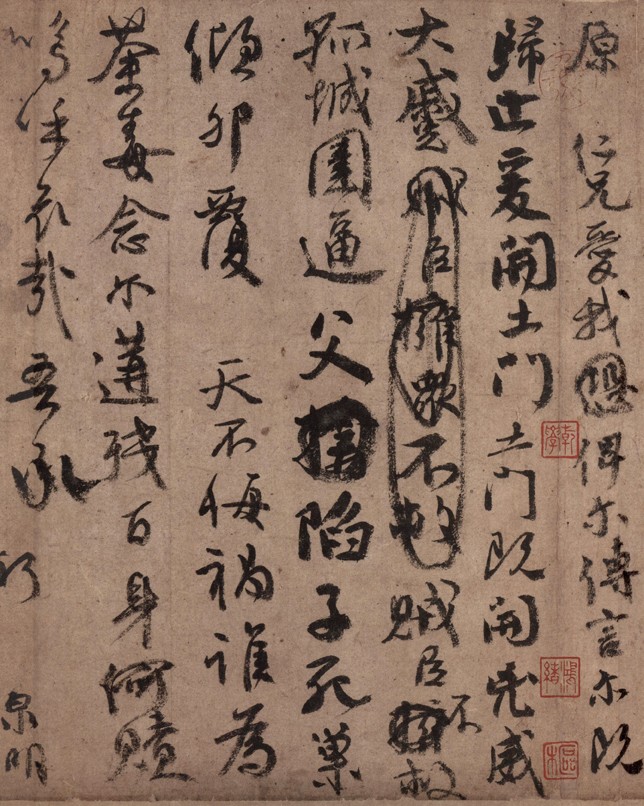 原 仁兄愛我 俾尓傳言尓既
歸止爰開土門土門既開凶威
大蹙賊臣擁眾不救賊臣不救
孤城圍逼父陷子死巢
傾卵覆 天不悔禍誰為
荼毒念尓遘殘百身何贖
嗚呼哀哉吾承
泉明